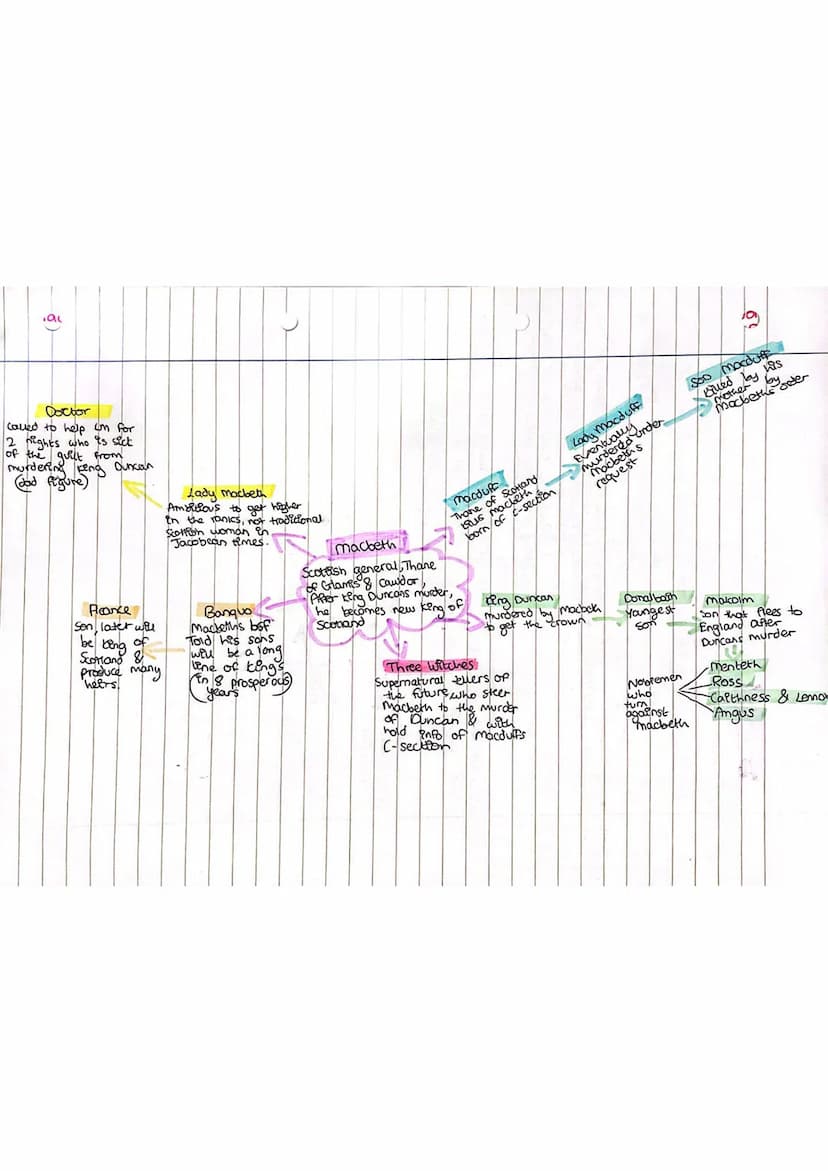 19.
19.
Son Macduff
killed by his
mother by
Macbeths order
Lady Macduff
Eventually
murdered under
Macbeths
request
Macduff
Thane of Scotland
kills Macbeth &
born of C-section
Doctor
called to help Lm for
2 nights who is sick
of the guilt from
murdering King Duncan
(dad figure)
Lady Macbeth
Ambitious to get higher
in the ranks, not traditional
Scottish woman in
Jacobean times.
Macbeth
Scottish general, Thane
of Glamis & Cawdor,
After King Duncans murder,
he becomes new King of
Scotland
Fleance
Son, later will
be king of
Scotland &
produce many
heirs.
Banquo
Macbeth's bsf
Told his sons
will be a long
line of kings
(in 8 prosperous)
years
King Duncan
murdered by Macbeth
to get the crown
Donalbain
Youngest
son
Malcolm
Son that flees to
England after
Duncans murder
Three Witches
Supernatural tellers of
the future, who steer
Macbeth to the murder
of Duncan & with
hold info of Macduffs
C-section
Noblemen
who
turn
against
Macbeth
Menteth
Ross
Caithness & Lennox
Angus